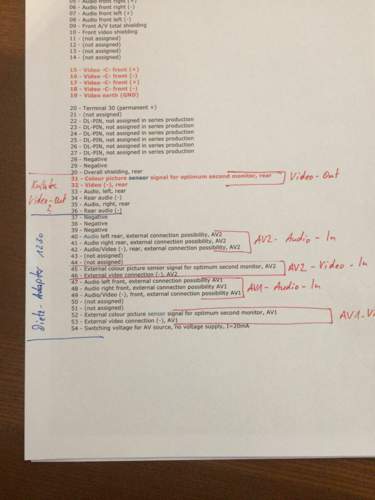 05 - Audio front right (+)
06 - Audio front right (-)
07 - Audio front left (+)
08 - Audio front left (-)
09 - Front A/V total shielding
10 - Front video shielding
11 - (not assigned)
12 - (not assigned)
13 - (not assigned)
14 - (not assigned)
15 - Video -C- front (+)
16 - Video -C- front (-)
17 - Video -C- front (+)
18 - Video -C- front (-)
19 - Video earth (GND)
20 - Terminal 30 (permanent +)
21 - (not assigned)
22 - DL-PIN, not assigned in series production
23 - DL-PIN, not assigned in series production
24 - DL-PIN, not assigned in series production
25 - DL-PIN, not assigned in series production
26 - DL-PIN, not assigned in series production
27 - DL-PIN, not assigned in series production
28 - Negative
29 - Negative
30 - Overall shielding, rear
31 - Colour picture sensor signal for optimum second monitor, rear
Video-Out
32 - Video (-), rear
33 - Audio, left, rear
34 - Rear audio (-)
35 - Audio, right, rear
36 - Rear audio (-)
37 - Negative
38 - Negative
39 - Negative
40 - Audio left rear, external connection possibility, AV2
41 - Audio right rear, external connection possibility, AV2
AV2 - Audio - In
42 - Audio/Video (-), rear, external connection possibility, AV2
43 - (not assigned)
44 - (not assigned)
45 - External colour picture sensor signal for optimum second monitor, AV2
AV2 - Video - In
46 - External video connection (-), AV2
47 - Audio left front, external connection possibility AV1
48 - Audio right front, external connection possibility AV1
AV1 - Audio - In
49 - Audio/Video (-), front, external connection possibility AV1
50 - (not assigned)
51 - (not assigned)
52 - External colour picture sensor signal for optimum second monitor, AV1
AV1-Vi
53 - External video connection (-), AV1
54 - Switching voltage for AV source, no voltage supply, I=20mA
Video-Out
?
Dietz-Adapter 1280